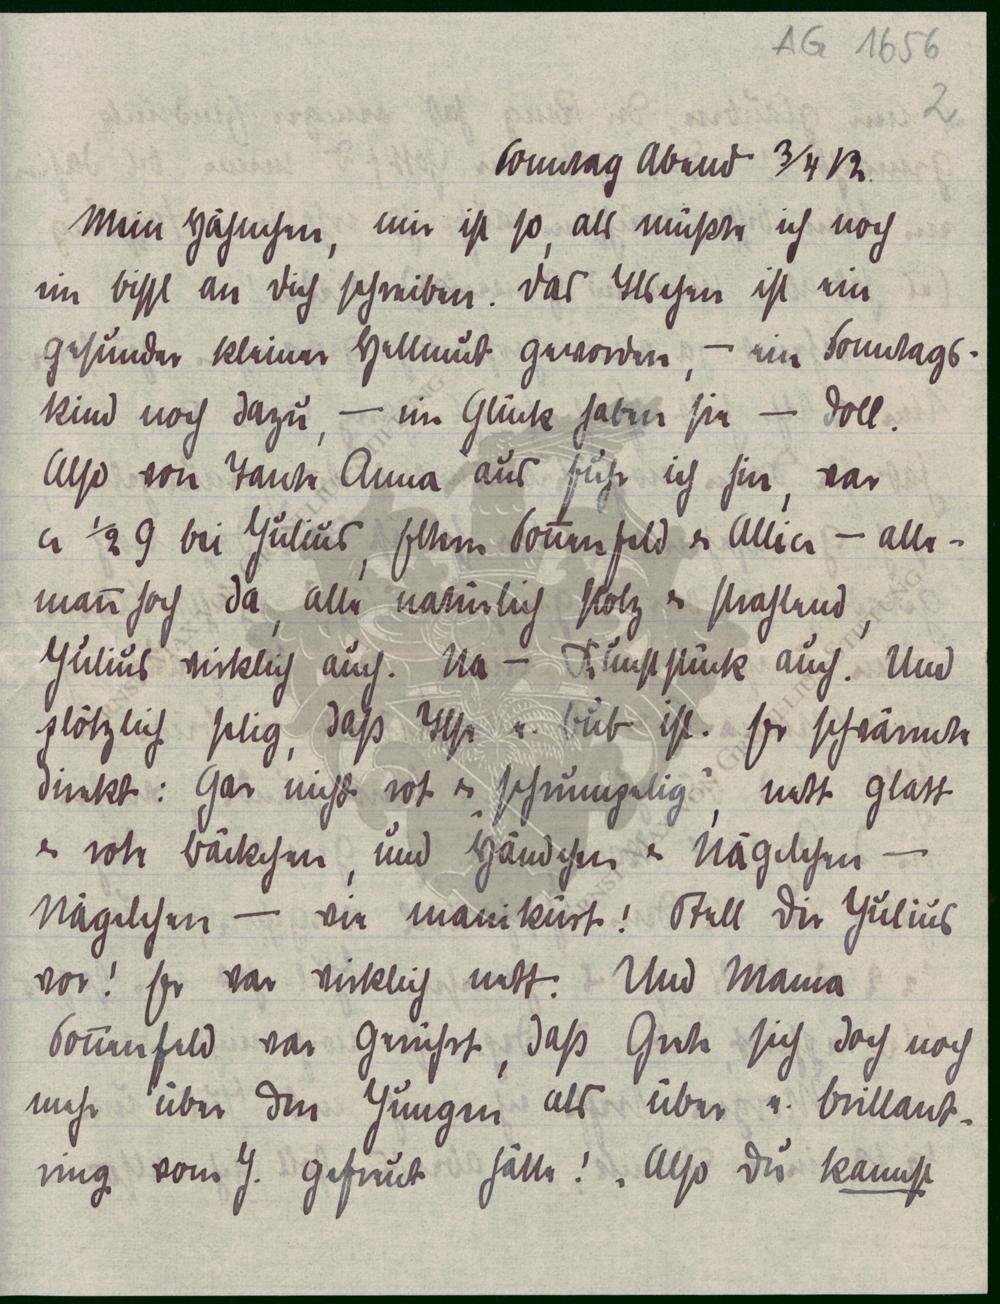 AG 1656
2
Sonntag Abend 3/4 12.
Mein Hähnchen, mir ist so, als müßte ich noch
ein bissl an Dich schreiben. Das Ilschen ist ein
gesunder kleiner Hellmut geworden, — ein Sonntags-
kind noch dazu, — ein Glück haben sie — doll.
Also von Tante Anna aus fuhr ich hin, war
ca 1/2 9 bei Julius, Eltern Sonnenfeld & Allice — alle-
mann hoch da, alle natürlich stolz & strahlend,
Julius wirklich auch. Na — Kunststück auch. Und
plötzlich selig, daß Ilse e. Bub ist. Er schwärmte
direkt: Gar nicht rot & „schrumpelig", nett glatt
& rote Bäckchen, und Händchen & Nägelchen —
Nägelchen — wie manikürt! Stell Dir Julius
vor! Er war wirklich nett. Und Mama
Sonnenfeld war gerührt, daß Grete sich doch noch
mehr über den Jungen als über e. Brillant-
ring vom J. gefreut hätte! Also Du kannst